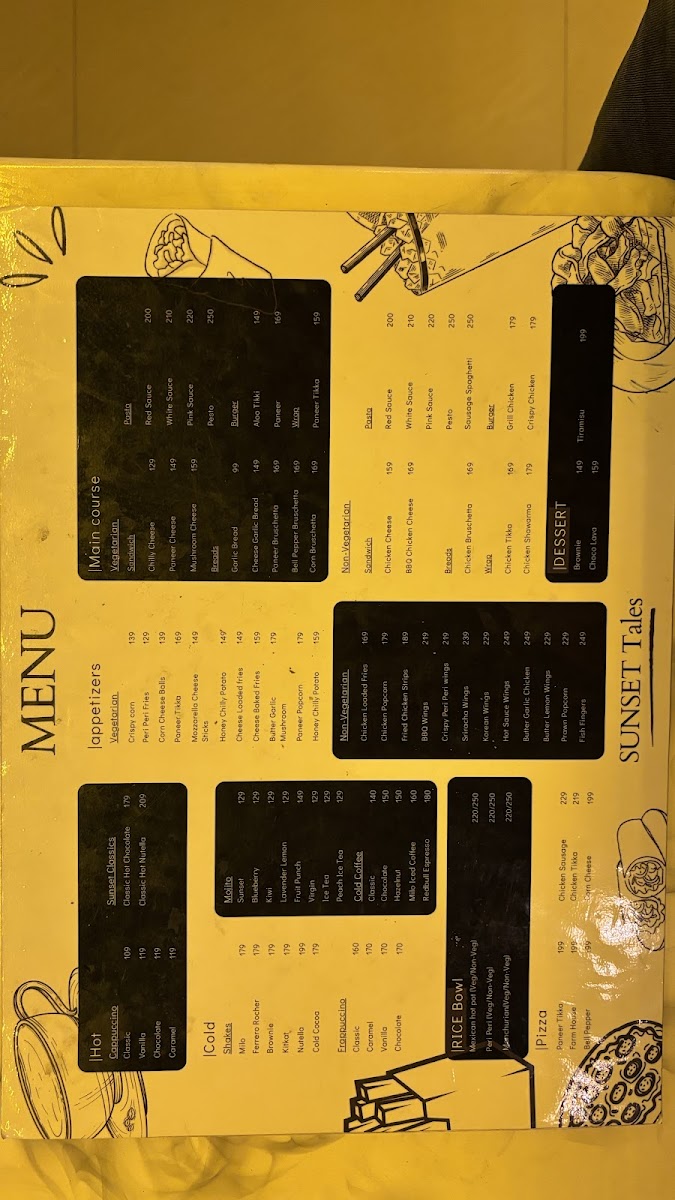 MENU
|Hot
Cappuccino
Classic 109
Vanilla 119
Chocolate 119
Caramel 119
Sunset Classics
Classic Hot Chocolate 179
Classic Hot Nutella 209
|Cold
Shakes
Milo 179
Ferrero Rocher 179
Brownie 179
Kitkat 179
Nutella 199
Cold Cocoa 179
Frappuccino
Classic 160
Caramel 170
Vanilla 170
Chocolate 170
Mojito
Sunset 129
Blueberry 129
Kiwi 129
Lavender Lemon 129
Fruit Punch 149
Virgin 129
Ice Tea 129
Peach Ice Tea 129
Cold Coffee
Classic 140
Chocolate 150
Hazelnut 150
Milo Iced Coffee 160
Redbull Espresso 180
|RICE Bowl
Mexican hot pot (Veg/Non-Veg) 220/250
Peri Peri (Veg/Non-Veg) 220/250
Manchurian(Veg/Non-Veg) 220/250
|Pizza
Paneer Tikka 199
Farm House 199
Bell Pepper
Chicken Sausage 229
Chicken Tikka 219
Corn Cheese 199
|appetizers
Vegetarian
Crispy corn 139
Peri Peri Fries 129
Corn Cheese Balls 139
Paneer Tikka 169
Mozzarella Cheese 149
Sticks
Honey Chilly Potato 149
Cheese Loaded fries 149
Cheese Baked Fries 159
Butter Garlic 179
Mushroom
Paneer Popcorn 179
Honey Chilly Potato 159
Non-Vegetarian
Chicken Loaded Fries 169
Chicken Popcorn 179
Fried Chicken Strips 189
BBQ Wings 219
Crispy Peri Peri wings 219
Sriracha Wings 239
Korean Wings 229
Hot Sauce Wings 249
Butter Garlic Chicken 249
Butter Lemon Wings 229
Prawn Popcorn 229
Fish Fingers 249
|Main course
Vegetarian
Sandwich
Chilly Cheese 129
Paneer Cheese 149
Mushroom Cheese 159
Breads
Garlic Bread 99
Cheese Garlic Bread 149
Paneer Bruschetta 169
Bell Pepper Bruschetta 169
Corn Bruschetta 169
Pasta
Red Sauce 200
White Sauce 210
Pink Sauce 220
Pesto 250
Burger
Aloo Tikki 149
Paneer 169
Wrap
Paneer Tikka 159
Non-Vegetarian
Sandwich
Chicken Cheese 159
BBQ Chicken Cheese 169
Breads
Chicken Bruschetta 169
Wrap
Chicken Tikka 169
Chicken Shawarma 179
Pasta
Red Sauce 200
White Sauce 210
Pink Sauce 220
Pesto 250
Sausage Spaghetti 250
Burger
Grill Chicken 179
Crispy Chicken 179
|DESSERT
Brownie 149
Choco Lava 159
Tiramisu 199
SUNSET Tales